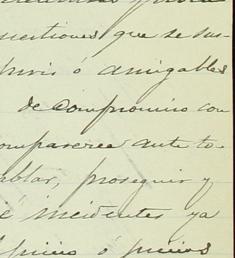 uestiones que se sus-
ó amigables
de compromiso con
omparecer ante to-
ablar, proseguir y
é incidentes ya
ó juicios